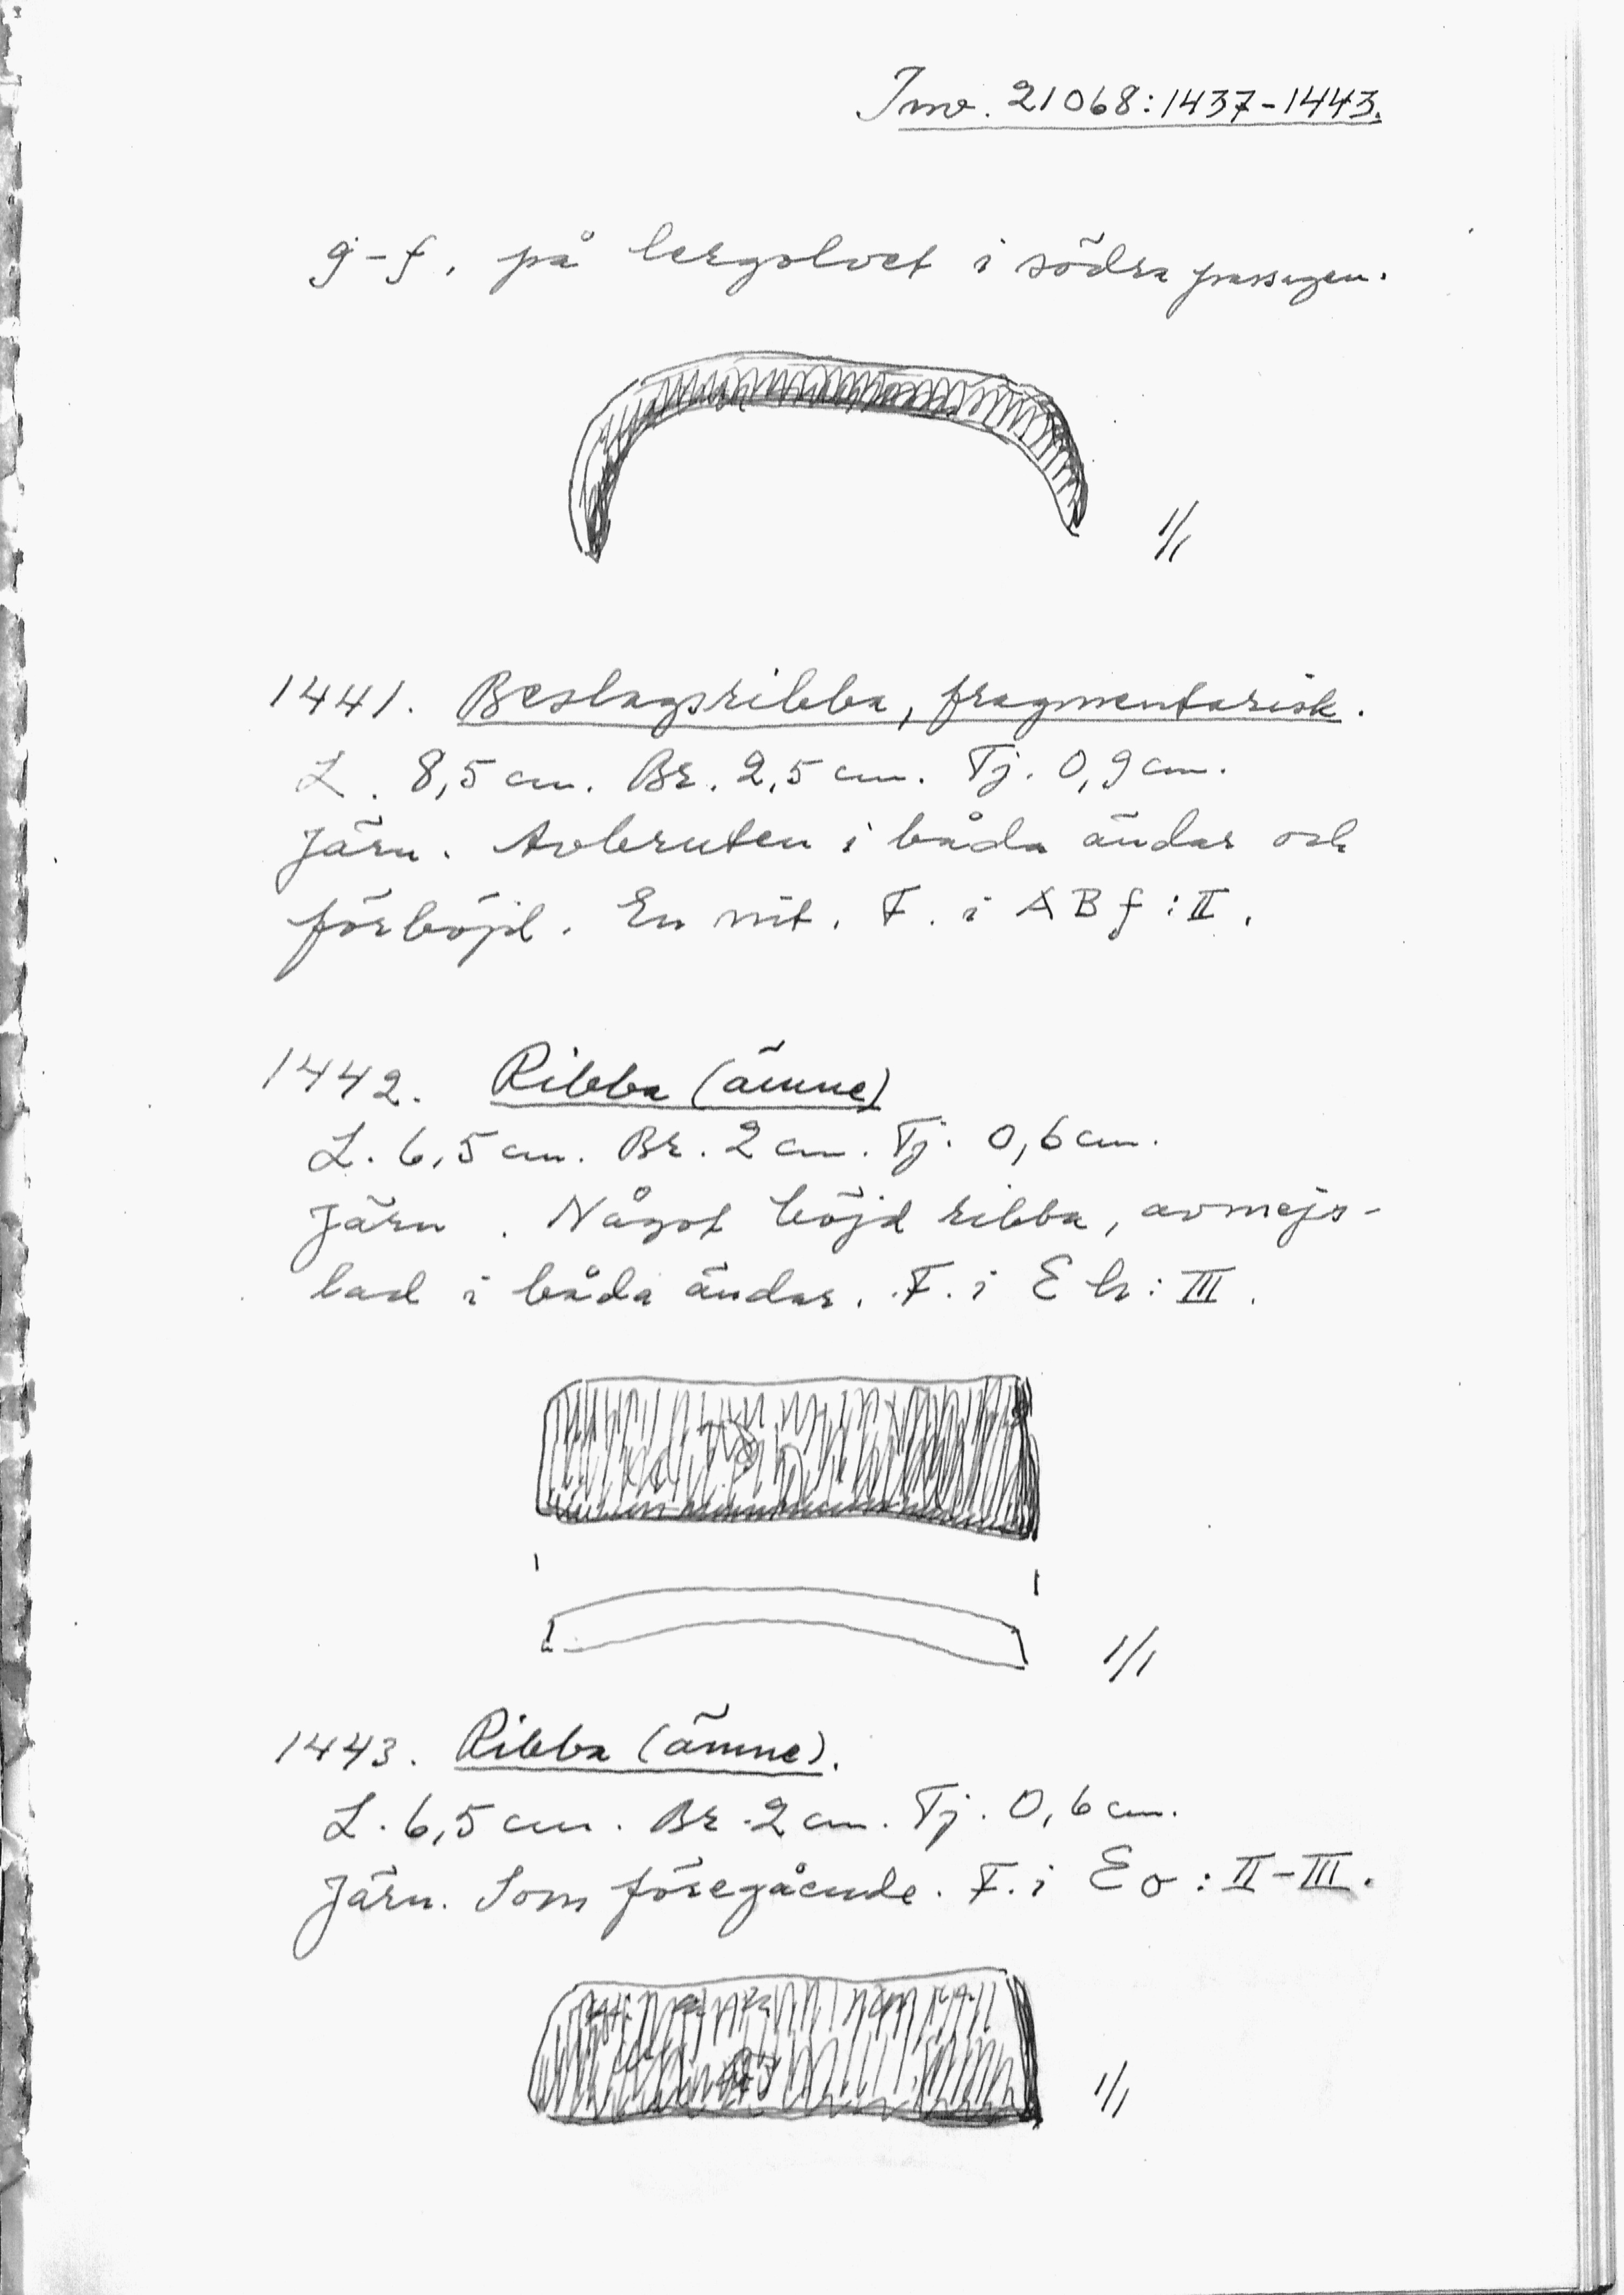 Inv. 21068:1437-1443.
g-f, på lergolvet i södra passagen.
1/1
1441. Beslagsribba, fragmentarisk.
L. 8,5 cm. Br. 2,5 cm. Tj. 0,9 cm.
Järn. Avbruten i båda ändar och
förböjd. En nit. F. i ABf:II.
1442. Ribba (ämne)
L. 6,5 cm. Br. 2 cm. Tj. 0,6 cm.
Järn. Något böjd ribba, avmejs-
lad i båda ändar. F. i Eh:III.
1/1
1443. Ribba (ämne).
L. 6,5 cm. Br. 2 cm. Tj. 0,6 cm.
Järn. Som föregående. F. i Eo:II-III.
1/1